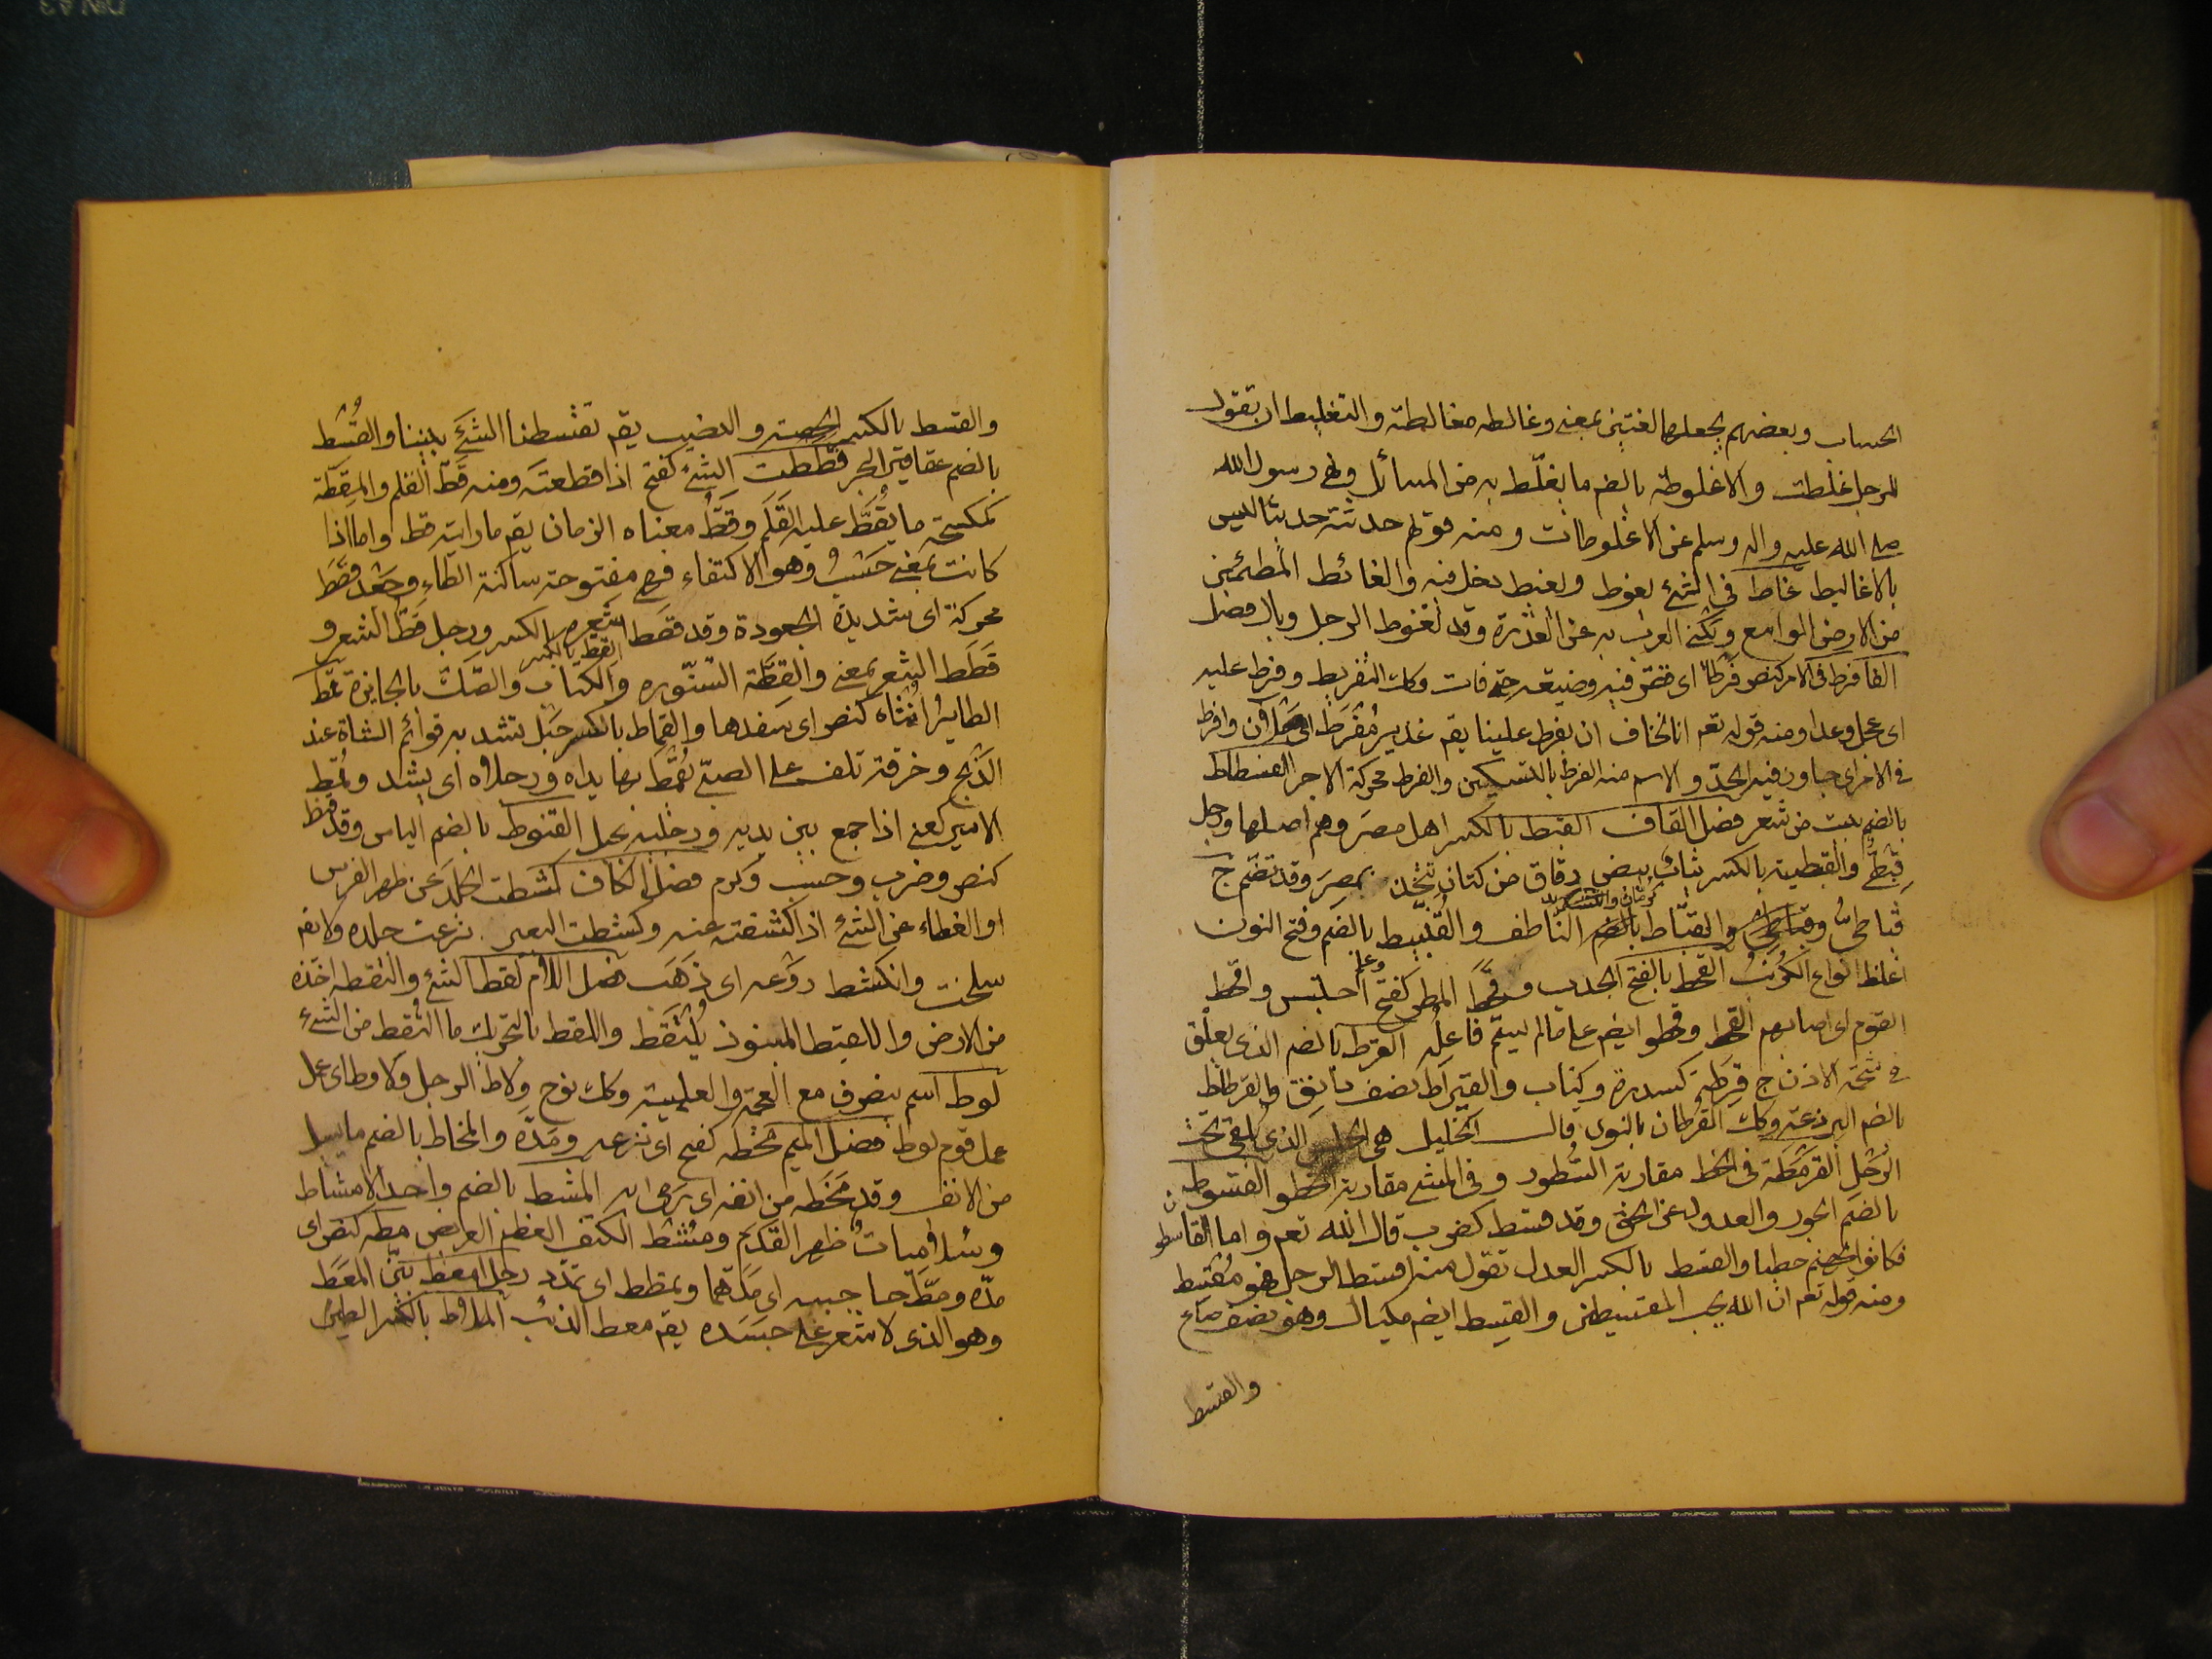 الحساب وبعضهم يجعلهما لغتين بمعنى وغالطه مغالطة والتغليط ان تقول
للرجل غلطت والاغلوطة بالضم ما يغلّط به من المسائل ونهى رسول الله
صلى الله عليه واله وسلم عن الاغلوطات ومنه قولهم حدثته حديثا ليس
بالاغاليط غاط في الشئ يغوط ويغيط دخل فيه والغائط المطمئن
من الارض الواسع ويكنى العرب به عن العذرة وقد تغوط الرجل وبال فصل
الفا فرط في الامر كنصر فرطا اى قصّر فيه وضيعه حتى فات وكك التفريط وفرط عليه
اى عجل وعدا ومنه قوله تعم اننا نخاف ان يفرط علينا يقم غدير مُفرَط اى ملآن وافرط
في الامر اى جاوز فيه الحدّ والاسم منه الفرط بالتسكين والفرط محركة الاجر الفسطاط
بالضم بيت من شعر فصل القاف القبط بالكسر اهل مصر وهم اصلها ورجل
قبطىّ والقبطية بالكسر ثياب بيض رقاق من كتان تتخذ بمصر وقد تضم ج
قباطىّ وقباطى والقبّاط بالضم الناطف والقُنّبيط بالضم وفتح النون
كرمان والتشديد
اغلظ انواع الكرنب القحط بالفتح الجدب وقحط المطر كفتح وعلم احتبس واقحط
القوم اى اصابهم القحط وقحطوا ايضم على ما لم يسمّ فاعله القرط بالضم الذى يعلق
في شحمة الاذن ج قرطة كسدرة وكتاب والقيراط نصف دانق والقرطاط
بالضم البرذعة وكك القرطان بالنون قال الخليل هى الحلس الذى يلقى تحت
الرحل القرمطة في الخط مقاربة السطور وفي المشى مقاربة الخطو القسوط
بالضم الجور والعدول عن الحق وقد قسط كضرب قال الله تعم واما القاسطون
فكانوا لجهنم حطبا والقسط بالكسر العدل تقول منه اقسط الرجل فهو مُقسِط
ومنه قوله تعم ان الله يحب المقسطين والقسط ايضم مكيال وهو نصف صاع
والقسط
والقسط بالكسر الحصة والنصيب يقم تقسطنا الشئ بيننا والقُسط
بالضم عقاقير البحر قططت الشئ كفتح اذا قطعته ومنه قطّ القلم والمقطّة
كمكبة ما يُقطّ عليه القلم وقطُّ معناه الزمان يقم ما رايته قط واما اذا
كانت بمعنى حسب وهو الاكتفاء فهى مفتوحة ساكنة الطاء وجعد قطط
محركة اى شديدة الجعودة وقد قطط شعره بالكسر ورجل قطّ الشعر و
قطط الشعر بمعنى والقطّة السنّوره القط بالكسر والكتاب والصّك بالجايزة قمط
الطاير انثاه كنصر اى سفدها والقماط بالكسر حبل تشد به قوائم الشاة عند
الذبح وخرقة تلف على الصبىّ تُقمّط بها يداه ورجلاه اى يشد وقُمِط
الاسير كعنى اذا جمع بين يديه ورجليه بحبل القنوط بالضم الياس وقد قنط
كنصر وضرب وحسب وكرم فصل الكاف كشطت الجلد عن ظهر الفرس
او الغطاء عن الشئ اذا كشفته عنه وكشطت البعير نزعت جلده ولا يقم
سلخت وانكشط روعه اى ذهب فصل اللام لقط الشئ والتقطه اخذه
من الارض واللقيط المنبوذ يُلتقط واللقط بالتحريك ما التقط من الشئ
لوط اسم ينصرف مع العجمة والعلمية وكك نوح ولاط الرجل ولاوط اى عمل
عمل قوم لوط فصل الميم مخطه كفتح اى نزعه ومدّه والمخاط بالضم ما يسيل
من الانف وقد مخطه من انفه اى رمى به المشط بالضم واحد الامشاط
وسلاميات ظهر القدم ومُشط الكتف العظم العريض مطه كنصر اى
مدّه ومطّ حاجبيه اى مدّهما وتمطط اى تمدّد رجل امعط بيّن المعط
وهو الذى لا شعر على جسده يقم معط الذئب الملاط بالكسر الطين